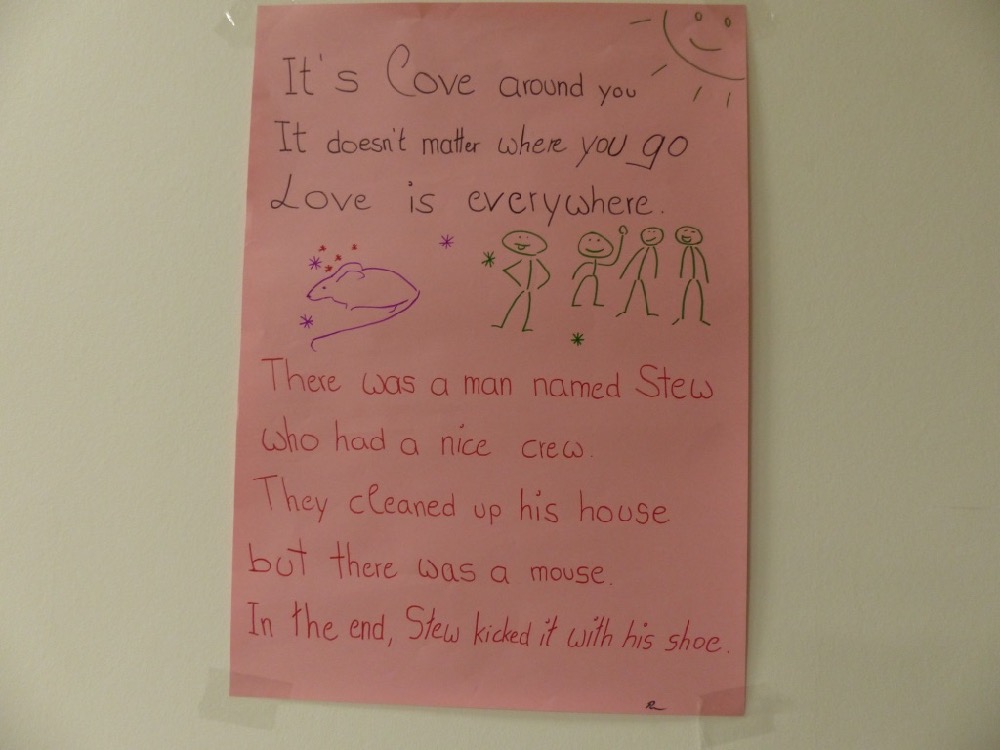 It's Love around you
It doesn't matter where you go
Love is everywhere.
There was a man named Stew
who had a nice crew.
They cleaned up his house
but there was a mouse.
In the end, Stew kicked it with his shoe.